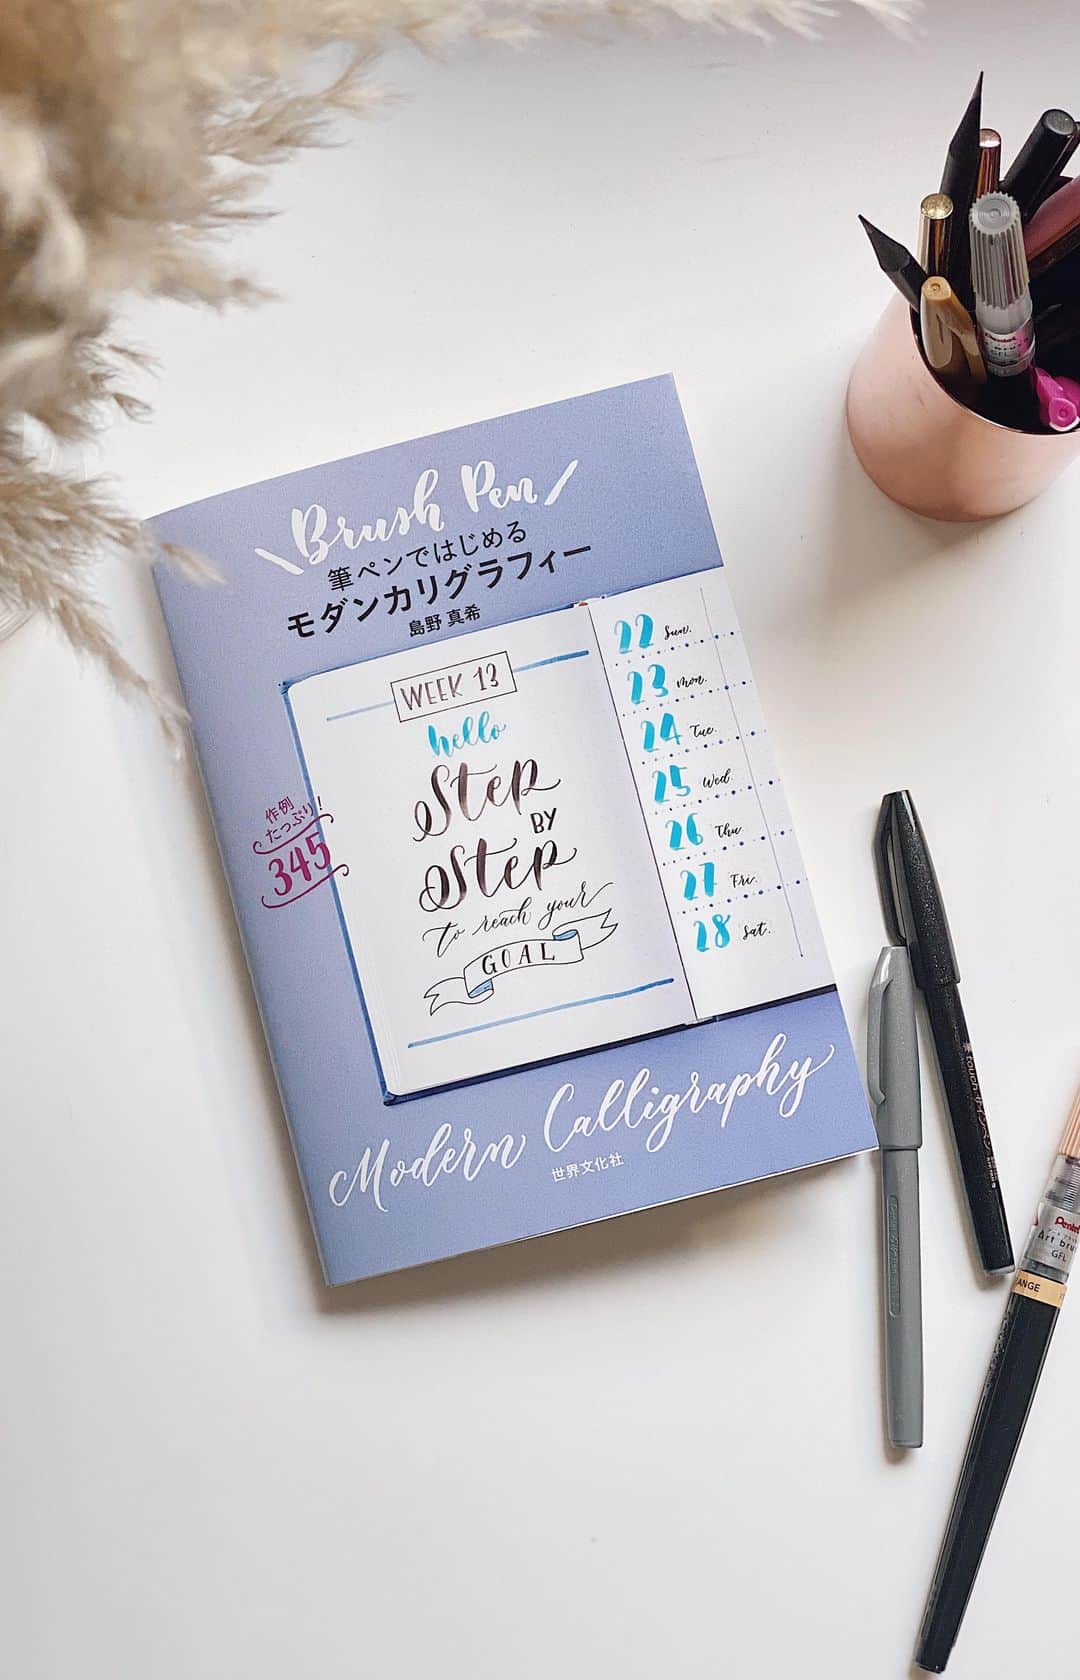 Brush Pen
筆ペンではじめる
モダンカリグラフィー
島野 真希
WEEK 13
hello
Step
BY
Step
to reach your
GOAL
22 Sun.
23 mon.
24 Tue.
25 Wed.
26 Thu
27 Fri.
28 Sat.
作例
たっぷり!
345
Modern Calligraphy
世界文化社
touch
Pentel
Art bru
GFL
ANGE